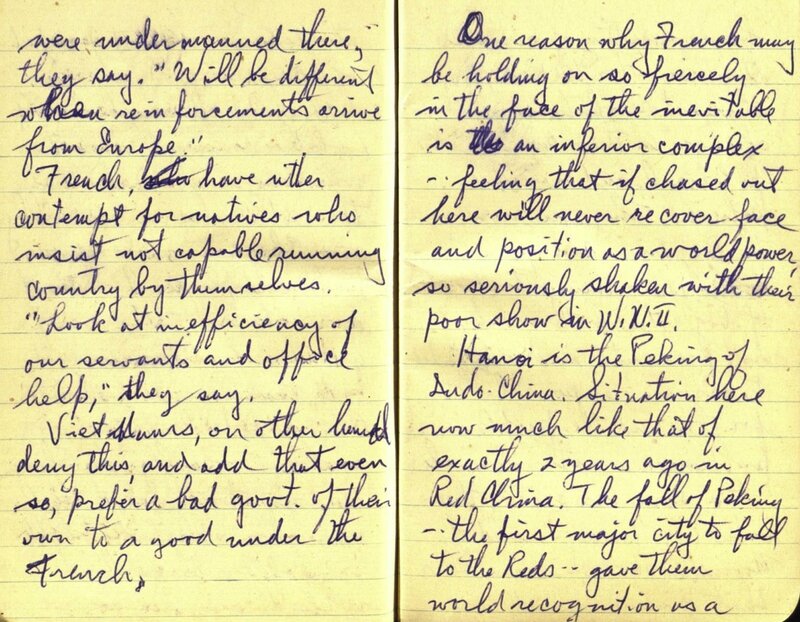 were undermanned there,"
they say. "Will be different
when reinforcements arrive
from Europe."
French, have utter
contempt for natives who
insist not capable running
country by themselves.
"Look at inefficiency of
our servants and office
help," they say.
Viet Manrs, on other hand
deny this, and add that even
so, prefer a bad govt. of their
own to a good under the
French.
One reason why French may
be holding on so fiercely
in the face of the inevitable
is an inferior complex
-- feeling that if chased out
here will never recover face
and position as a world power,
so seriously shaken with their
poor show in W.W. II.
Hanoi is the Peking of
Indo-China. Situation here
now much like that of
exactly 2 years ago in
Red China. The fall of Peking
-- the first major city to fall
to the Reds -- gave them
world recognition as a